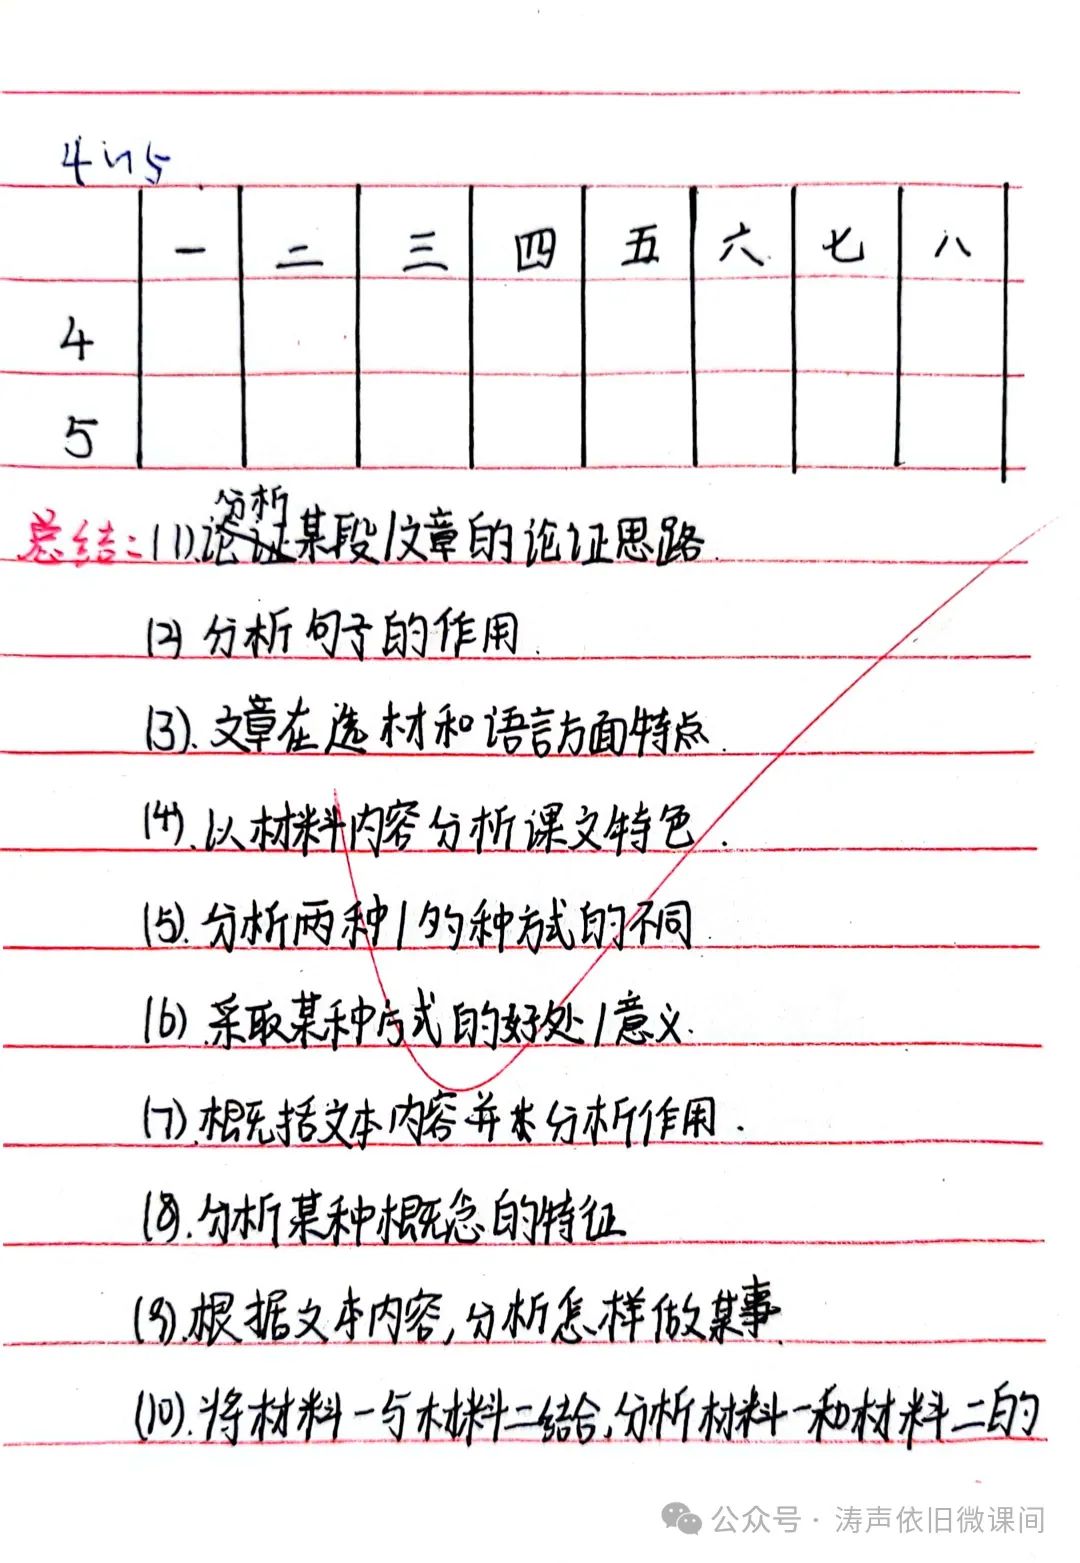 4 5
一 二 三 四 五 六 七 八
4
5
分析
总结：(1).论证某段/文章的论证思路.
(2) 分析句子的作用.
(3).文章在选材和语言方面特点.
(4).以材料内容分析课文特色.
(5).分析两种/的种方式的不同
(6).采取某种方式的好处/意义.
(7).概括文本内容并分析作用.
(8).分析某种概念的特征
(9).根据文本内容,分析怎样做某事.
(10).将材料一与材料二结合,分析材料一和材料二的
公众号·涛声依旧微课间